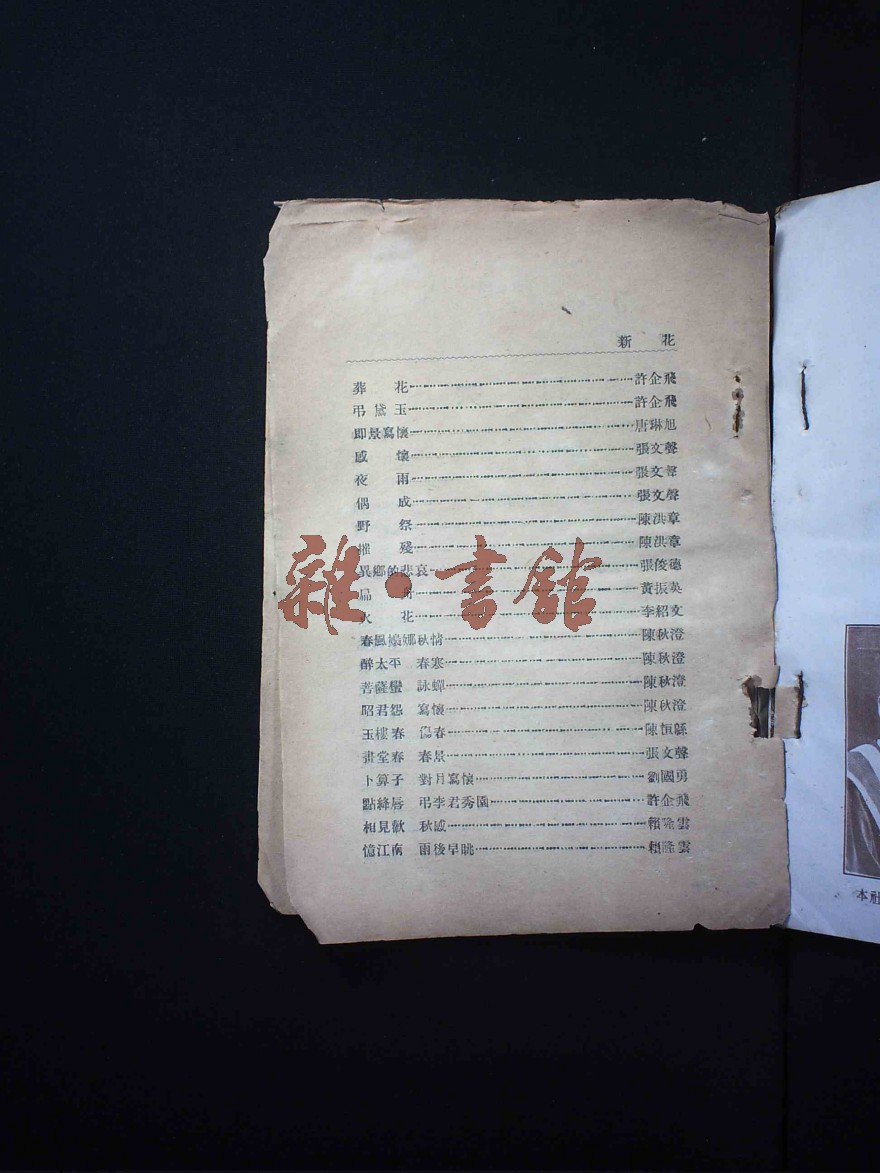 新花
葬花許企飛
弔黛玉許企飛
即景寫懷唐琳旭
感懷張文聲
夜雨張文聲
偶成張文聲
野祭陳洪章
摧殘陳洪章
異鄉的悲哀張俊德
扁舟黃振英
火花李紹文
春風嬝娜秋情陳秋澄
醉太平 春寒陳秋澄
菩薩蠻 詠蟬陳秋澄
昭君怨 寫懷陳秋澄
玉樓春 傷春陳恒縣
畫堂春 春景張文聲
卜算子 對月寫懷劉國勇
點絳唇 弔李君秀園許企飛
相見歡 秋感賴隆雲
憶江南 雨後早眺賴隆雲
雜·書館
本社